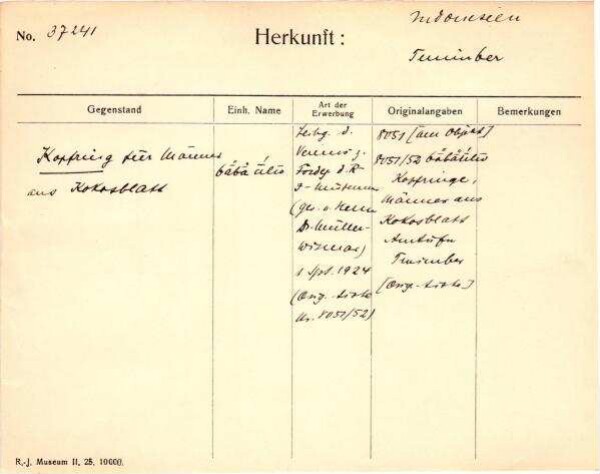 No. 37241
Herkunft:
Indonesien
Tenimber
Gegenstand
Einh. Name
Art der Erwerbung
Originalangaben
Bemerkungen
Kopfring für Männer
aus Kokosblatt
bäbä úlu
d.
Vereins z.
Förder d. R-
J-Museums
(ges. v. Herrn
Dr. Müller-
Wismar)
1 Spt. 1924
(Orig.-Liste
Nr. 8051/52)
8051 [am Objekt]
8051/52 bäbäúlu
Kopfringe,
Männer aus
Kokosblatt
Tenimber
[Orig.-Liste]
R.-J. Museum II, 25, 10000.